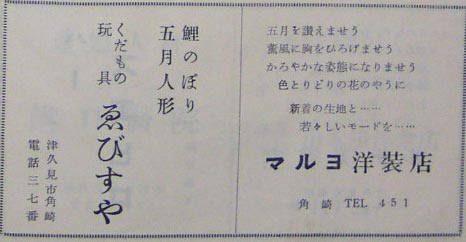 五月を讃えませう
薫風に胸をひろげませう
かろやかな姿態になりませう
色とりどりの花のやうに
新着の生地と……
若々しいモードを……
マルヨ洋装店
角崎 TEL 451
鯉のぼり
五月人形
くだもの
玩具
ゑびすや
津久見市角崎
電話三七番